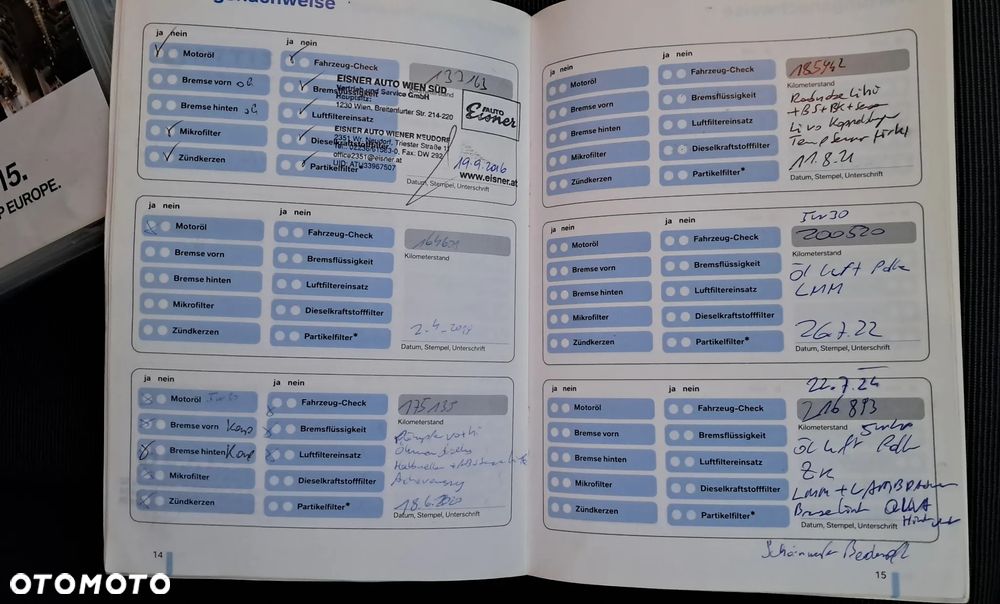 15.
P EUROPE.
gennachweise
ja nein
Motoröl
Bremse vorn ok
Bremse hinten ok
Mikrofilter
Zündkerzen
ja nein
Fahrzeug-Check
Bremsflüssigkeit
Luftfiltereinsatz
Dieselkraftstofffilter
Partikelfilter*
133163
Kilometerstand
EISNER AUTO WIEN SÜD
Vertrieb und Service GmbH
Hauptsitz:
1230 Wien, Breitenfurter Str. 214-220
EISNER AUTO WIENER NEUDORF
2351 Wr. Neudorf, Triester Straße
office2351@eisner.at
UID: ATU33967507
AUTO
Eisner
www.eisner.at
19.9.2016
Datum, Stempel, Unterschrift
ja nein
Motoröl
Bremse vorn
Bremse hinten
Mikrofilter
Zündkerzen
ja nein
Fahrzeug-Check
Bremsflüssigkeit
Luftfiltereinsatz
Dieselkraftstofffilter
Partikelfilter*
Kilometerstand
Datum, Stempel, Unterschrift
ja nein
Motoröl 5W30
Bremse vorn
Bremse hinten
Mikrofilter
Zündkerzen
ja nein
Fahrzeug-Check
Bremsflüssigkeit
Luftfiltereinsatz
Dieselkraftstofffilter
Partikelfilter*
175135
Kilometerstand
18.6.2020
Datum, Stempel, Unterschrift
14
ja nein
Motoröl
Bremse vorn
Bremse hinten
Mikrofilter
Zündkerzen
ja nein
Fahrzeug-Check
Bremsflüssigkeit
Luftfiltereinsatz
Dieselkraftstofffilter
Partikelfilter*
185942
Kilometerstand
11.8.21
Datum, Stempel, Unterschrift
ja nein
Motoröl
Bremse vorn
Bremse hinten
Mikrofilter
Zündkerzen
ja nein
Fahrzeug-Check
Bremsflüssigkeit
Luftfiltereinsatz
Dieselkraftstofffilter
Partikelfilter*
5W30
200520
Kilometerstand
Öl Luft
LMM
26.7.22
Datum, Stempel, Unterschrift
ja nein
Motoröl
Bremse vorn
Bremse hinten
Mikrofilter
Zündkerzen
ja nein
Fahrzeug-Check
Bremsflüssigkeit
Luftfiltereinsatz
Dieselkraftstofffilter
Partikelfilter*
22.7.24
216893
Kilometerstand
Öl Luft
ZK
LMM +
Datum, Stempel, Unterschrift
15
OTOMOTO